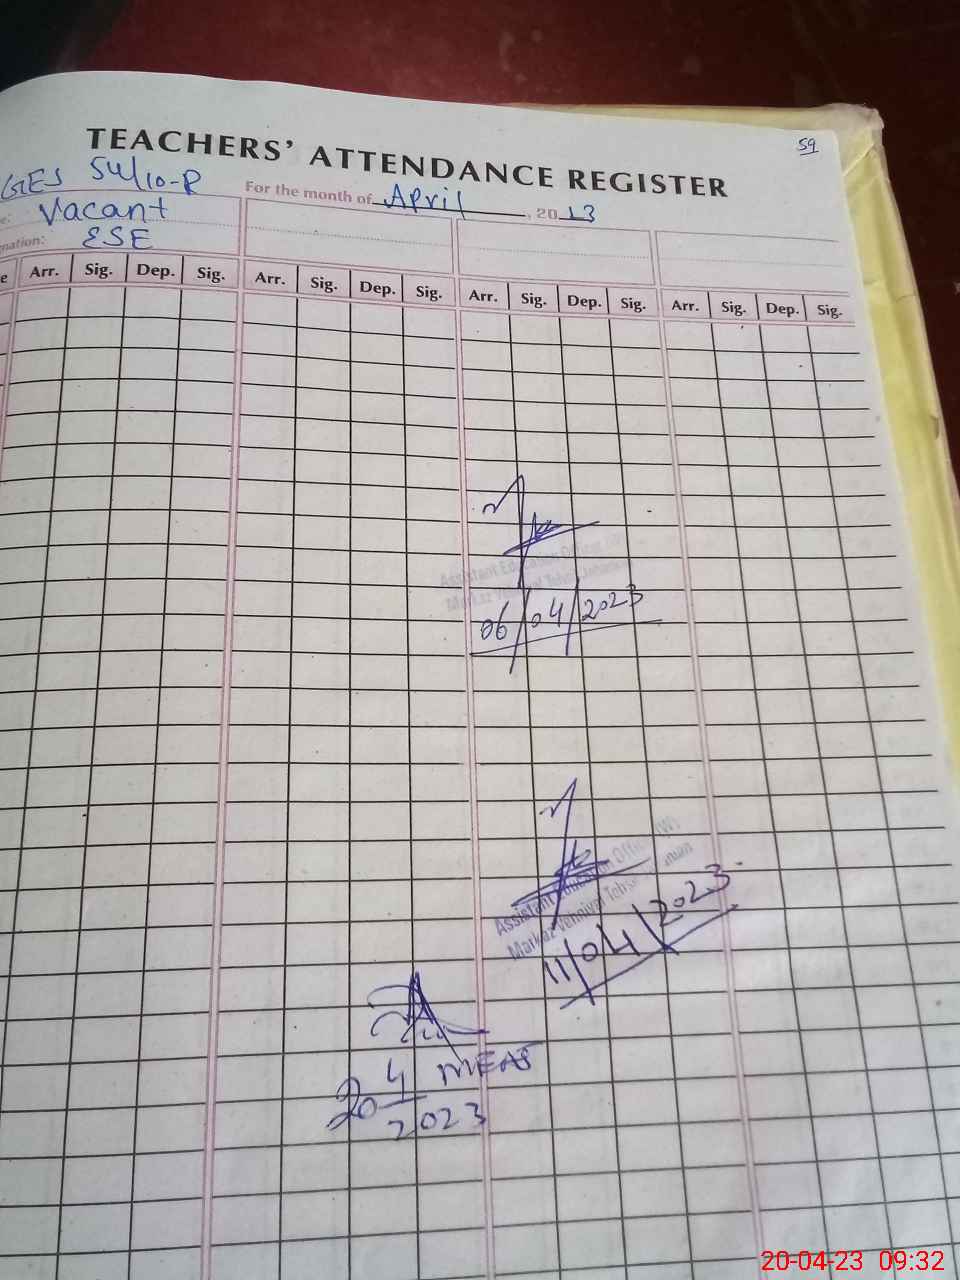 59
TEACHERS' ATTENDANCE REGISTER
GES 54/10-R
For the month of April, 2013
Vacant
nation: ESE
Arr. Sig. Dep. Sig. Arr. Sig. Dep. Sig. Arr. Sig. Dep. Sig. Arr. Sig. Dep. Sig.
Assistant Education Officer
Markaz Vehniwal Tehsil
06/04/2023
Assistant Education Officer (W)
Markaz Vehniwal Tehsil
11/04/2023
MEAS
20 4
2023
20-04-23 09:32